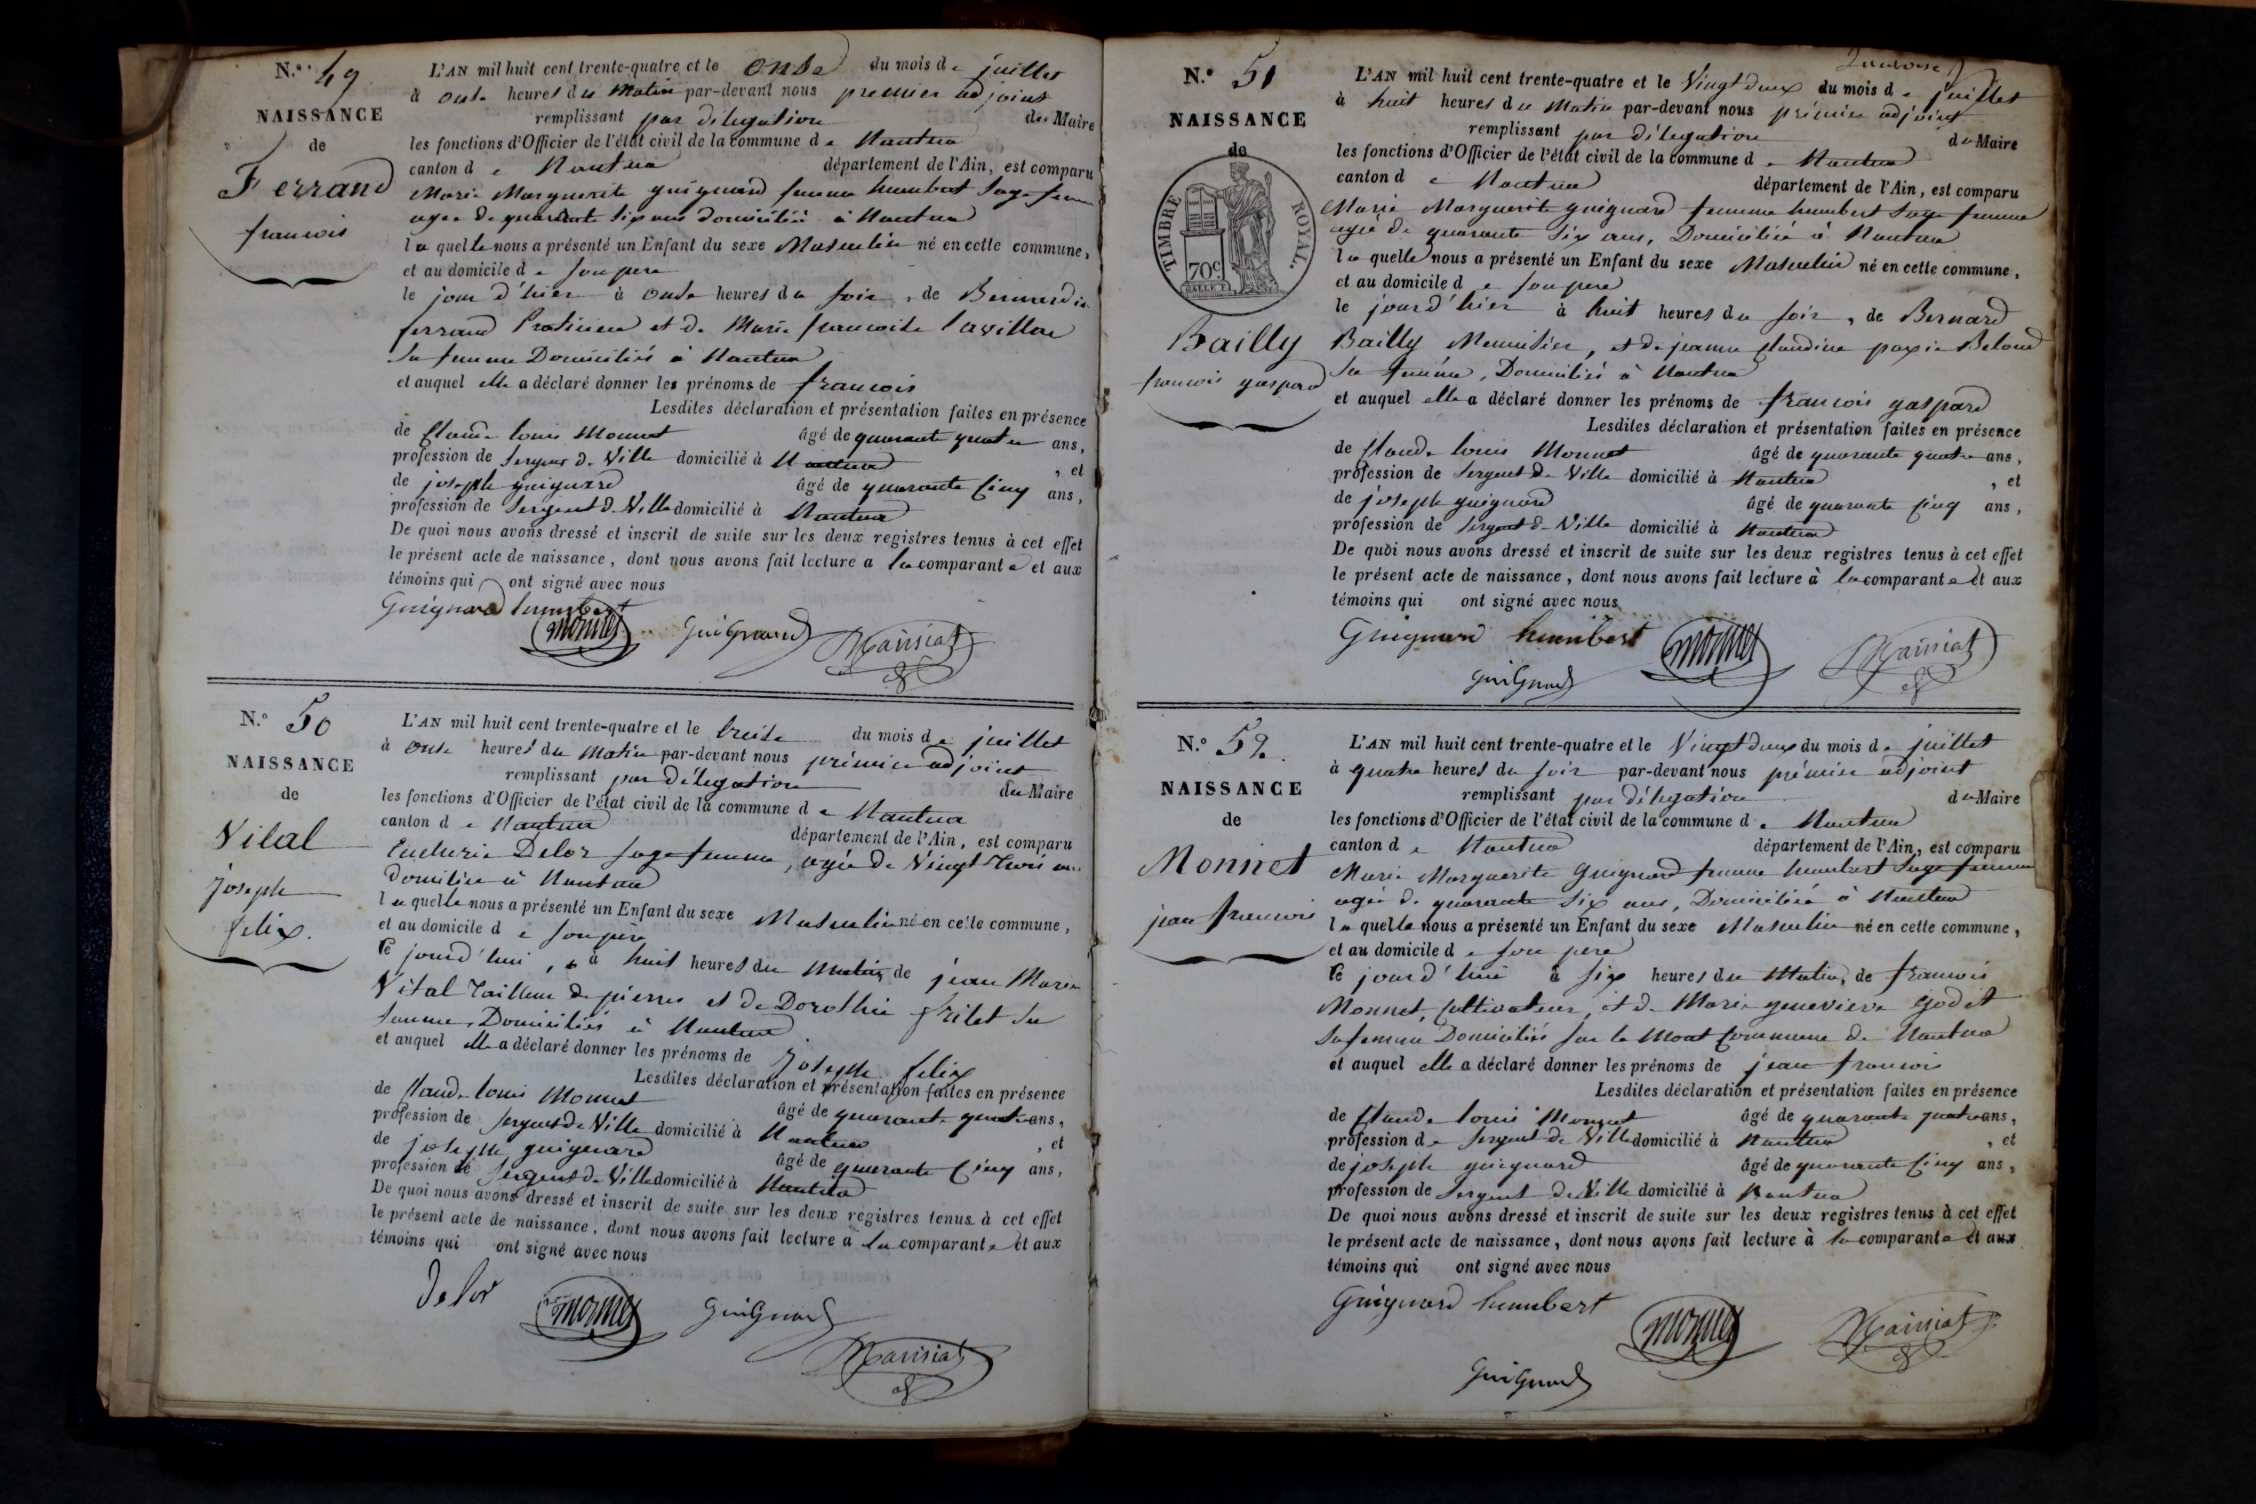 N.º 49
NAISSANCE
de
Ferrand
francois
L'AN mil huit cent trente-quatre et le onse du mois de juillet
à onse heures du matin par-devant nous premier adjoint
remplissant par délégation du Maire
les fonctions d'Officier de l'état civil de la commune de Nantua
canton de Nantua département de l'Ain, est comparu
Marie Marguerite guignard femme humbert Sage femme
agée de quarante Six ans domiciliée à Nantua
laquelle nous a présenté un Enfant du sexe Masculin né en cette commune,
et au domicile de son pere
le jour d'hier à onse heures du soir, de Bernardin
ferrand Praticien et de Marie francoise
sa femme Domiciliés à Nantua
et auquel elle a déclaré donner les prénoms de francois
Lesdites déclaration et présentation faites en présence
de Claude louis Monnet âgé de quarante quatre ans,
profession de Sergent de Ville domicilié à Nantua, et
de joseph guignard âgé de quarante Cinq ans,
profession de Sergent de Ville domicilié à Nantua
De quoi nous avons dressé et inscrit de suite sur les deux registres tenus à cet effet
le présent acte de naissance, dont nous avons fait lecture a la comparante et aux
témoins qui ont signé avec nous
Guignard humbert
monnet GuiGnard Maissiat
N.º 50
NAISSANCE
de
Vital
joseph
felix.
L'AN mil huit cent trente-quatre et le treise du mois de juillet
à onse heures du matin par-devant nous prémier adjoint
remplissant par délégation du Maire
les fonctions d'Officier de l'état civil de la commune de Nantua
canton de Nantua département de l'Ain, est comparu
Delor sage femme, agée de Vingt trois ans
domiciliée à Nantua
laquelle nous a présenté un Enfant du sexe Masculin né en cette commune,
et au domicile de son père
le jourd'hui, à huit heures du matin, de jean Marie
Vital tailleur de pierres et de Dorothée frilet sa
femme, Domiciliés à Nantua
et auquel elle a déclaré donner les prénoms de joseph felix
Lesdites déclaration et présentation faites en présence
de Claude louis Monnet âgé de quarante quatre ans,
profession de Sergent de Ville domicilié à Nantua, et
de joseph guignard âgé de quarante Cinq ans,
profession de Sergent de Ville domicilié à Nantua
De quoi nous avons dressé et inscrit de suite sur les deux registres tenus à cet effet
le présent acte de naissance, dont nous avons fait lecture a la comparante et aux
témoins qui ont signé avec nous
Delor monnet GuiGnard
Maissiat
N.º 51
NAISSANCE
de
TIMBRE ROYAL.
70c
Bailly
francois gaspard
L'AN mil huit cent trente-quatre et le Vingt deux du mois de juillet
à huit heures du matin par-devant nous prémier adjoint
remplissant par délégation du Maire
les fonctions d'Officier de l'état civil de la commune de Nantua
canton de Nantua département de l'Ain, est comparu
Marie Marguerite guignard femme humbert Sage femme
agée de quarante Six ans, Domiciliée à Nantua
laquelle nous a présenté un Enfant du sexe Masculin né en cette commune,
et au domicile de son pere
le jourd'hier à huit heures du soir, de Bernard
Bailly Menuisier, et de jeanne Claudine
sa femme, Domiciliés à Nantua
et auquel elle a déclaré donner les prénoms de francois gaspard
Lesdites déclaration et présentation faites en présence
de Claude louis Monnet âgé de quarante quatre ans,
profession de Sergent de Ville domicilié à Nantua, et
de joseph guignard âgé de quarante Cinq ans,
profession de Sergent de Ville domicilié à Nantua
De quoi nous avons dressé et inscrit de suite sur les deux registres tenus à cet effet
le présent acte de naissance, dont nous avons fait lecture à la comparante et aux
témoins qui ont signé avec nous
Guignard humbert monnet Maissiat
GuiGnard
N.º 52.
NAISSANCE
de
Monnet
jean francois
L'AN mil huit cent trente-quatre et le Vingt deux du mois de juillet
à quatre heures du soir par-devant nous prémier adjoint
remplissant par délégation du Maire
les fonctions d'Officier de l'état civil de la commune de Nantua
canton de Nantua département de l'Ain, est comparu
Marie Marguerite Guignard femme humbert Sage femme
agée de quarante Six ans, Domiciliée à Nantua
laquelle nous a présenté un Enfant du sexe Masculin né en cette commune,
et au domicile de son pere
le jourd'hui à six heures du Matin, de francois
Monnet, Cultivateur, et de Marie genevieve Godet
sa femme Domiciliés sur le Mont Commune de Nantua
et auquel elle a déclaré donner les prénoms de jean francois
Lesdites déclaration et présentation faites en présence
de Claude louis Monnet âgé de quarante quatre ans,
profession de Sergent de Ville domicilié à Nantua, et
de joseph guignard âgé de quarante Cinq ans,
profession de Sergent de Ville domicilié à Nantua
De quoi nous avons dressé et inscrit de suite sur les deux registres tenus à cet effet
le présent acte de naissance, dont nous avons fait lecture à la comparante et aux
témoins qui ont signé avec nous
Guignard humbert
monnet Maissiat
GuiGnard